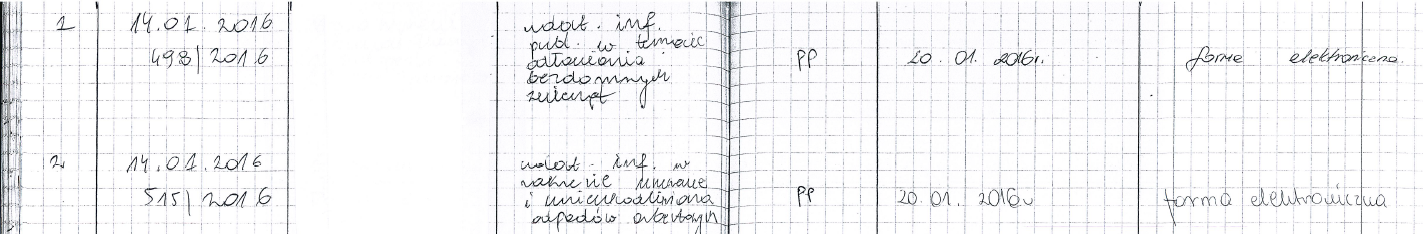 1
14.01.2016
498/2016
udost. inf.
publ. w temacie
odławiania
bezdomnych
zwierząt
PP
20.01.2016r.
forma elektroniczna
2.
14.01.2016
515/2016
udost. inf. w
zakresie
i unieszkodliwiania
odpadów azbestowych
PP
20.01.2016r
forma elektroniczna